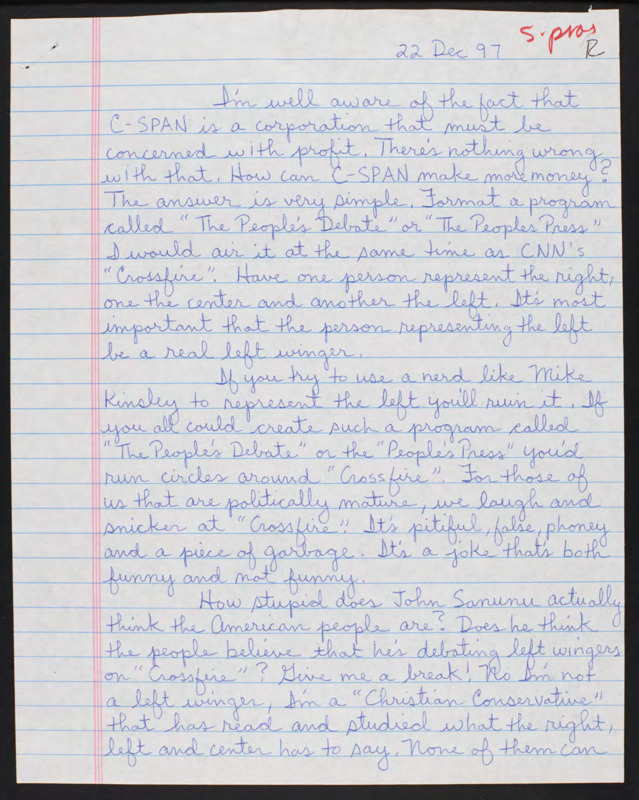 S. pros
R
22 Dec 97
I'm well aware of the fact that
C-SPAN is a corporation that must be
concerned with profit. There's nothing wrong
with that. How can C-SPAN make more money?
The answer is very simple. Format a program
called "The People's Debate" or "The Peoples Press"
I would air it at the same time as CNN's
"Crossfire". Have one person represent the right,
one the center and another the left. It's most
important that the person representing the left
be a real left winger.
If you try to use a nerd like Mike
Kinsley to represent the left you'll ruin it. If
you all could create such a program called
"The People's Debate" or the "People's Press" you'd
run circles around "Crossfire". For those of
us that are politically mature, we laugh and
snicker at "Crossfire". It's pitiful, false, phoney
and a piece of garbage. It's a joke thats both
funny and not funny.
How stupid does John Sununu actually
think the American people are? Does he think
the people believe that he's debating left wingers
on "Crossfire"? Give me a break! No I'm not
a left winger, I'm a "Christian Conservative"
that has read and studied what the right,
left and center has to say. None of them can